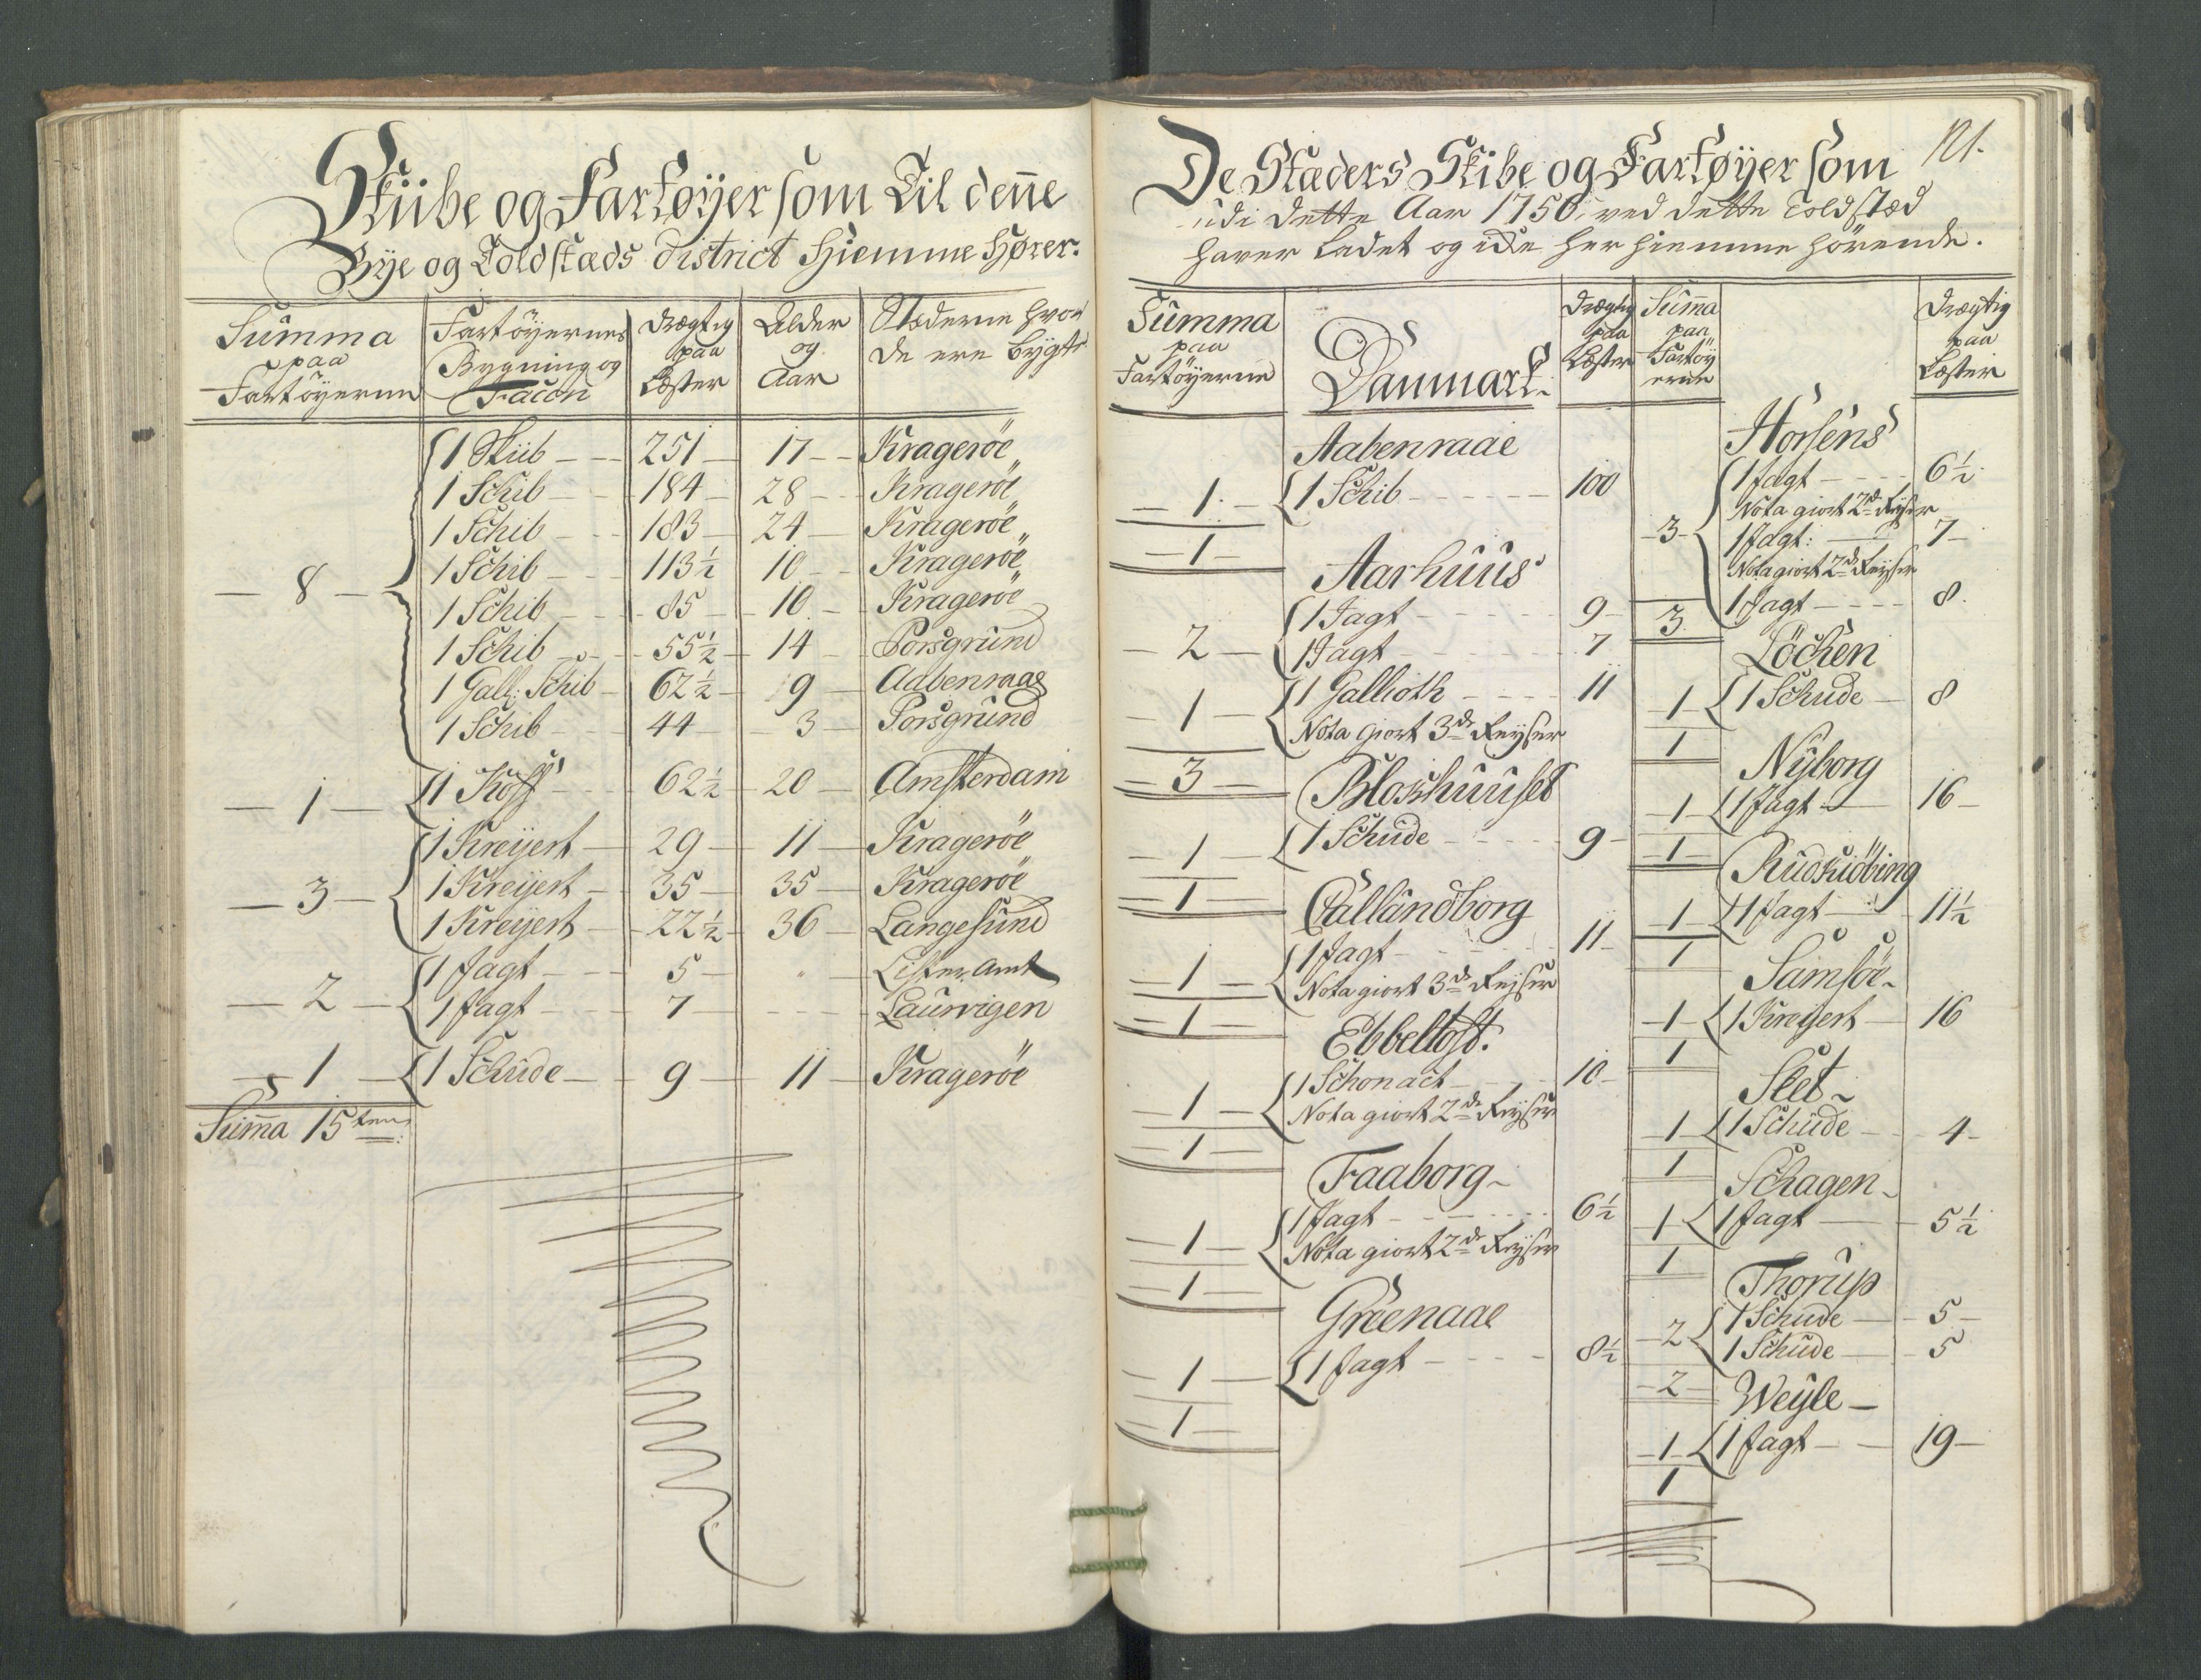 Skiibe og Fartøÿer som Til denne
Bÿe og Toldstæds District Hiemme Hører.
Summa paa Fartöÿerne | Fartöÿernes Bygning og Facon | Drægtig paa Læster | Alder og Aar | Stæderne hvor de ere bÿgte
1 Skiib — 251 — 17 — Kragerøe
1 Schib — 184 — 28 — Kragerøe
1 Schib — 183 — 24 — Kragerøe
1 Schib — 113½ — 10 — Kragerøe
— 8 —
1 Schib — 85 — 10 — Kragerøe
1 Schib — 55½ — 14 — Porsgrund
1 Gall: Schib — 62½ — 9 — Aabenraae
1 Schib — 44 — 3 — Porsgrund
— 1 — 1 Koff — 62½ — 20 — Amsterdam
1 Kreÿert — 29 — 11 — Kragerøe
— 3 — 1 Kreÿert — 35 — 35 — Kragerøe
1 Kreÿert — 22½ — 36 — Langesund
1 Jagt — 5 — " — Lister Amt
— 2 — 1 Jagt — 7 — — Laurvigen
— 1 — 1 Schude — 9 — 11 — Kragerøe
Summa 15ten
121.
De Stæders Skibe og Fartøÿer som
udi dette Aar 1750, ved dette Toldstæd
haver ladet og icke her hiemme hörende.
Summa paa Fartöÿerne | Danmark. | Drægtig paa Læster
Aabenraae
— 1 — 1 Schib — 100
— 1 —
Aarhuus
1 Jagt — 9
— 2 — 1 Jagt — 7
— 1 — 1 Gallioth — 11
Nota giort 3de Reÿser
— 3 —
Blokhuuset
— 1 — 1 Schude — 9
— 1 —
Callundborg
— 1 — 1 Jagt — 11
Nota giort 3de Reÿser
— 1 —
Ebbeltoft.
— 1 — 1 Schonact — 10
Nota giort 2de Reÿser
— 1 —
Faaborg
— 1 — 1 Jagt — 6½
Nota giort 2de Reÿser
— 1 —
Greenaae
— 1 — 1 Jagt — 8½
— 1 —
Summa paa Fartöÿerne | Drægtig paa Læster
Horsens
1 Jagt — 6½
Nota giort 2de Reÿser
— 3 — 1 Jagt: — 7
Nota giort 2de Reÿser
1 Jagt — 8
3
Löcken
— 1 — 1 Schude — 8
1
Nÿborg
— 1 — 1 Jagt — 16
— 1 —
Rudkiöbing
— 1 — 1 Jagt — 11½
1
Samsöe
— 1 — 1 Kreÿert — 16
1
Slet
— 1 — 1 Schude — 4
1
Schagen
— 1 — 1 Jagt — 5½
1
Thorup
1 Schude — 5
— 2 — 1 Schude — 5
— 2 —
Weÿle
— 1 — 1 Jagt — 19
1